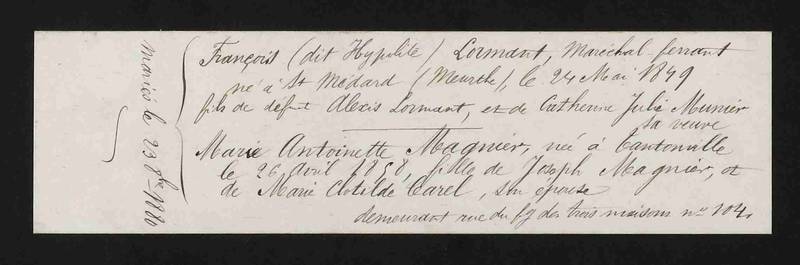 Mariés le 23 8bre 1880
François (dit Hypolite) Lormant, Maréchal ferrant
né à St Médard (Meurthe), le 24 Mai 1849
fils de défunt Alexis Lormant, et de Catherine Julie Munier
sa veuve
Marie Antoinette Magnier, née à Tantonville
le 26 Avril 1858, fille de Joseph Magnier, et
de Marie Clotilde Carel, son épouse
demeurant rue du fg des trois maisons no 104.